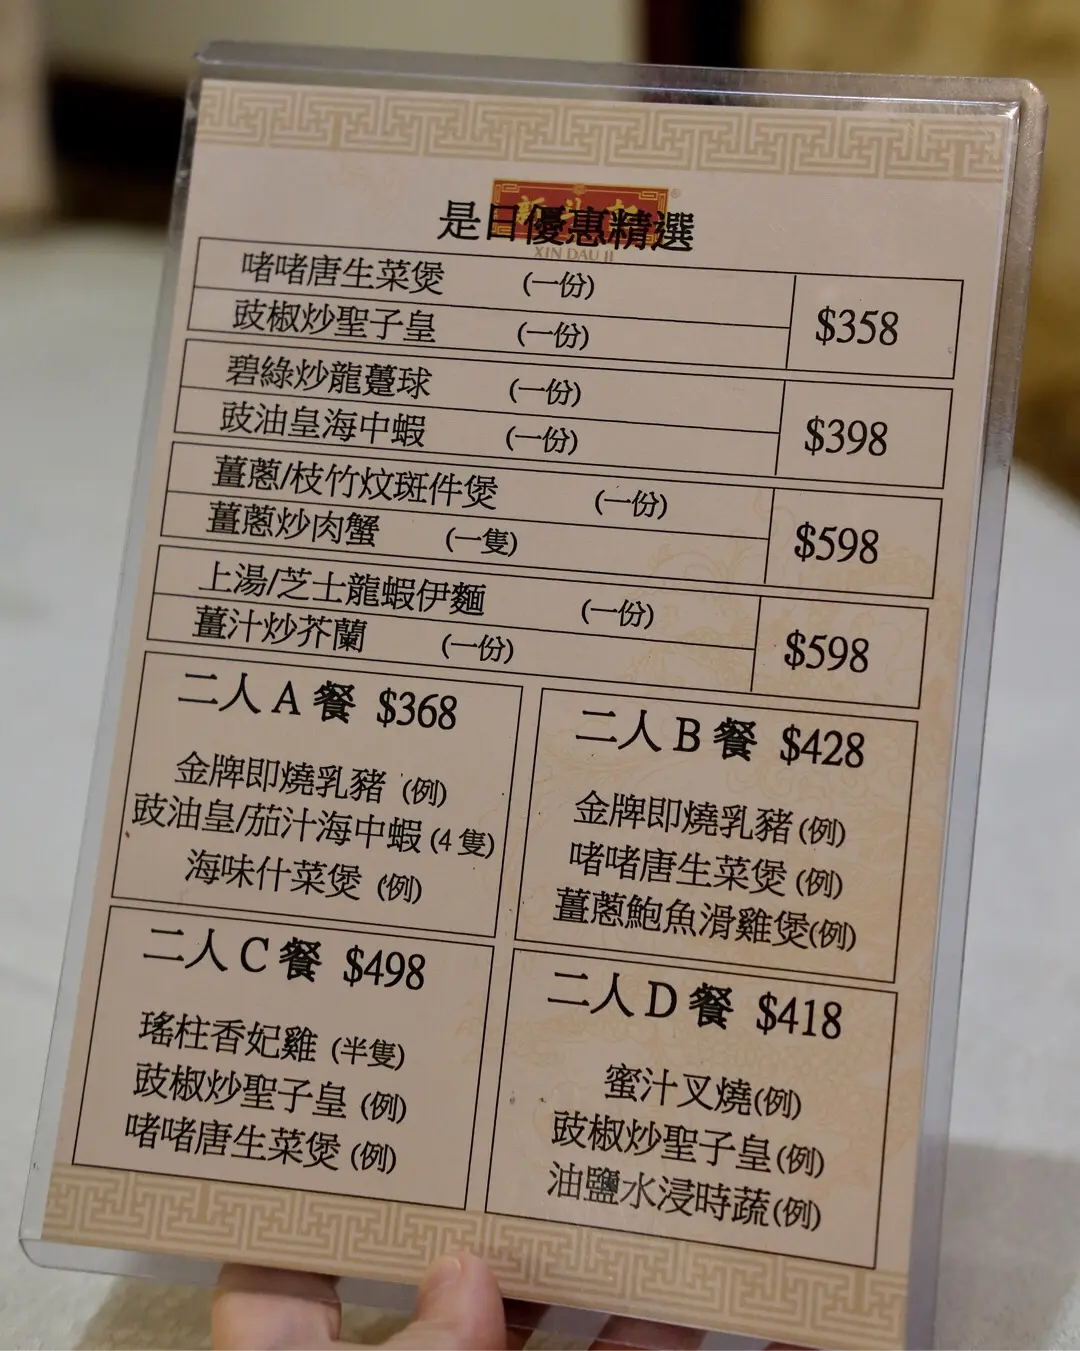 是日優惠精選
XIN DAU JI
啫啫唐生菜煲 (一份)
$358
豉椒炒聖子皇 (一份)
碧綠炒龍躉球 (一份)
$398
豉油皇海中蝦 (一份)
薑蔥/枝竹炆斑件煲 (一份)
$598
薑蔥炒肉蟹 (一隻)
上湯/芝士龍蝦伊麵 (一份)
$598
薑汁炒芥蘭 (一份)
二人 A 餐 $368
金牌即燒乳豬 (例)
豉油皇/茄汁海中蝦 (4 隻)
海味什菜煲 (例)
二人 B 餐 $428
金牌即燒乳豬 (例)
啫啫唐生菜煲 (例)
薑蔥鮑魚滑雞煲(例)
二人 C 餐 $498
瑤柱香妃雞 (半隻)
豉椒炒聖子皇 (例)
啫啫唐生菜煲 (例)
二人 D 餐 $418
蜜汁叉燒(例)
豉椒炒聖子皇(例)
油鹽水浸時蔬(例)